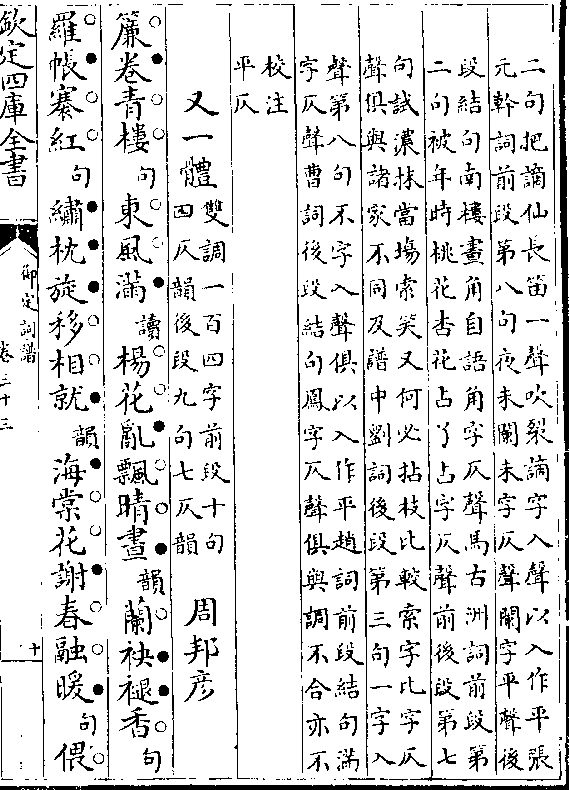 二句把謫仙長笛一聲吹裂謫字入聲以入作平張
元幹詞前段第八句夜未闌未字仄聲闌字平聲後
段結句南樓畫角自語角字仄聲馬古洲詞前段第
二句被年時桃花杏花占了占字仄聲前後段第七
句試濃抹當場索笑又何必拈枝比較索字比字仄
聲俱與諸家不同及譜中劉詞後段第三句一字入
聲第八句不字入聲俱以入作平趙詞前段結句滿
字仄聲曹詞後段結句鳳字仄聲俱與調不合亦不
校注
平仄
又一體 雙調一百四字前段十句
四仄韻後段九句七仄韻 周邦彥
簾卷青樓句東風滿讀楊花亂飄晴晝韻蘭袂褪香句
羅帳褰紅句繡枕旋移相就韻海棠花謝春融暖句偎
欽定四庫全書
御定詞譜
卷三十三
十